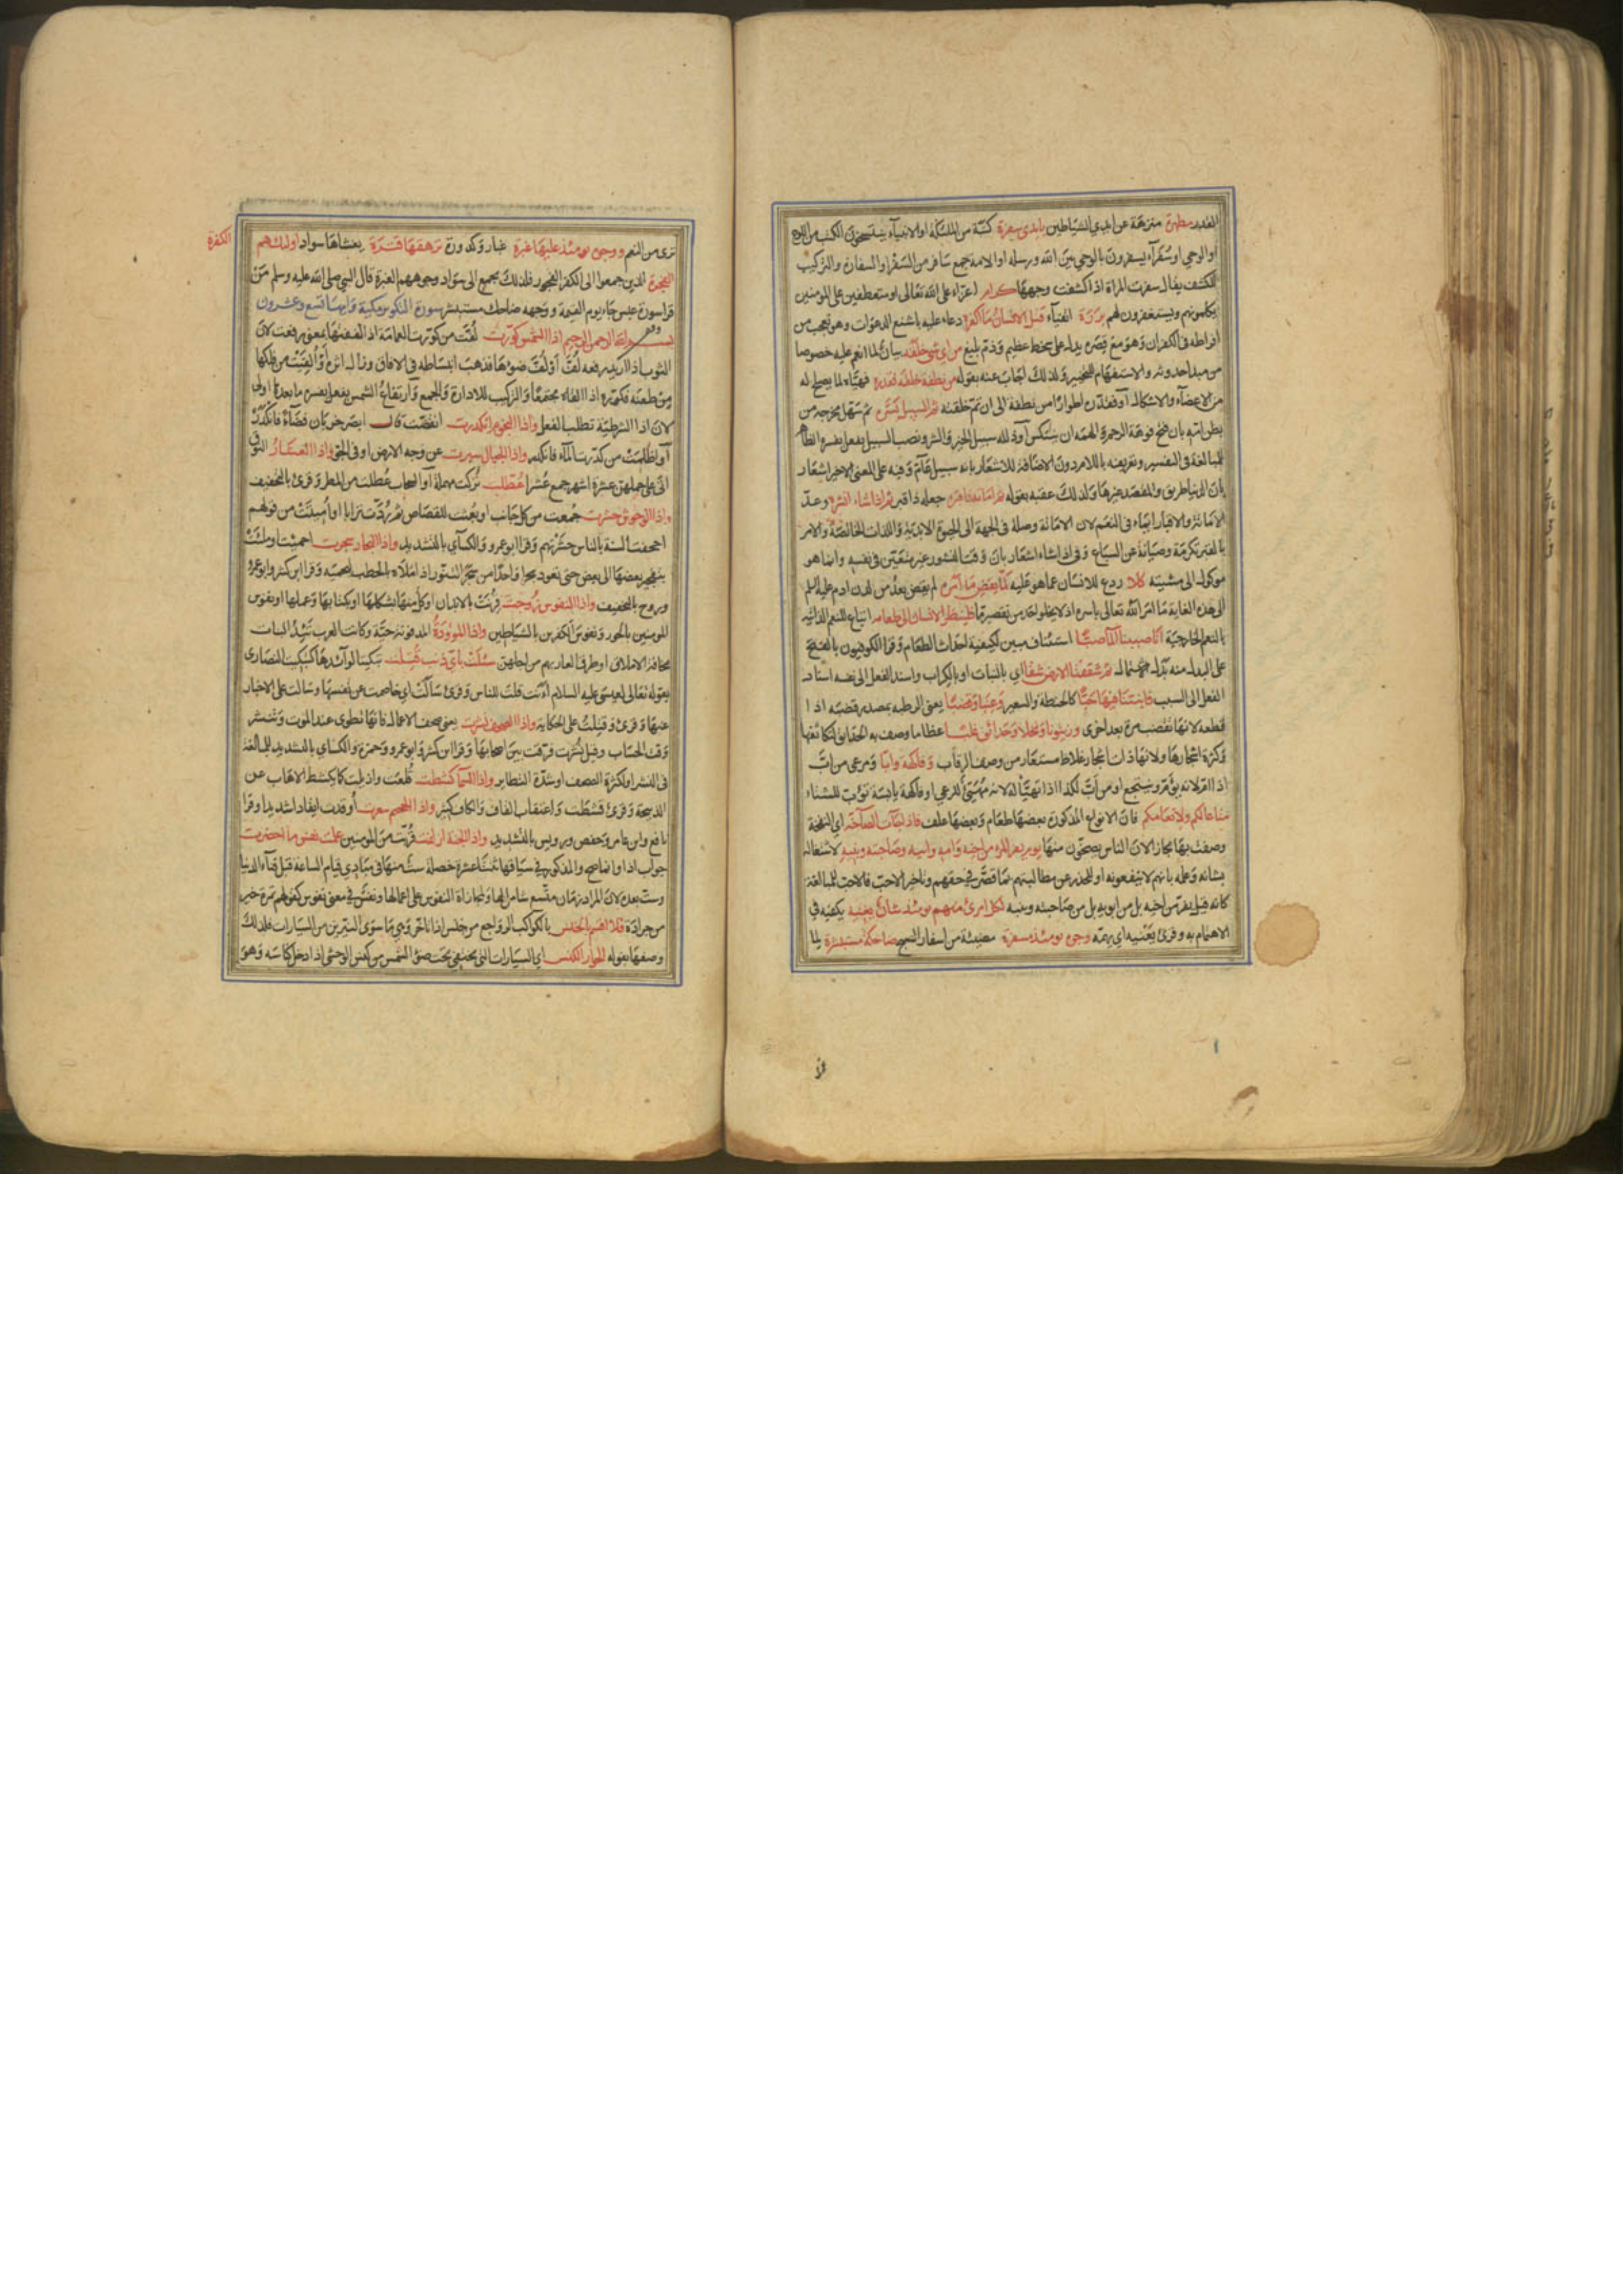 القدر مطهرة منزهة عن ايدي الشياطين بايدى سفرة كتبة من الملئكة او الانبياء ينتسخون الكتب من اللوح
او الوحى او سفرآء يسفرون بالوحى بين الله ورسله او الامة جمع سافر من السفر او السفارة والتركيب
للكشف يقال سفرت المراة اذا كشفت وجهها كرام اعزاء على الله تعالى او متعطفين على المومنين
يكلمونهم ويستغفرون لهم بررة اتقياء قتل الانسان ما اكفره دعاء عليه باشنع الدعوات وهو تعجب من
افراطه فى الكفران وهو مع قصره يدل على سخط عظيم وذم بليغ من اى شىء خلقه بيان لما انعم عليه خصوصا
من مبدا حدوثه والاستفهام للتحقير ولذلك اجاب عنه بقوله من نطفة خلقه فقدره فهيأه لما يصلح له
من الاعضآء والاشكال او فقدره اطوارا من نطفة الى ان تم خلقته ثم السبيل يسره ثم سهل مخرجه من
بطن امه بان فتح فوهة الرحم والهمه ان ينتكس او ذلل له سبيل الخير والشر ونصب السبيل بفعل يفسره الظاهر
للمبالغة فى التفسير وتعريفه باللام دون الاضافة للاشعار بانه سبيل عام وفيه على المعنى الاخير اشعار
بان الدنيا طريق والمقصد غيرها ولذلك عقبه بقوله ثم اماته فاقبره جعله ذا قبر ثم اذا شاء انشره وعد
الاماتة والاقبار ايماء فى النعم لان الاماتة وصلة فى الجهة الى الحيوة الابدية واللذات الخالصة والامر
بالقبر تكرمة وصيانة عن السباع وفى اذا شاء اشعار بان وقت النشور غير متعين فى نفسه وانما هو
موكول الى مشيته كلا ردع للانسان عما هو عليه لما يقض ما امره لم يقض بعد من لدن ادم عليه السلم
الى هذه الغاية ما امر الله تعالى باسره اذ لا يخلو احد من تقصير ما فلينظر الانسان الى طعامه اتباع للنعم الذاتية
بالنعم الخارجية انا صببنا المآء صبا استئناف مبين لكيفية احداث الطعام وقرا الكوفيون بالفتح
على البدل منه بدل الاشتمال ثم شققنا الارض شقا اي بالنبات او بالكراب واسند الفعل الى نفسه اسناد
الفعل الى السبب فانبتنا فيها حبا كالحنطة والشعير وعنبا وقضبا يعنى الرطبه بمصدر قضبه اذا
قطعه لانها تقضب مرة بعد اخرى وزيتونا ونخلا وحدائق غلبا عظاما وصف به الحدائق لتكاثفها
وكثرة اشجارها ولانها ذات اشجار غلاظ مستعار من وصف الرقاب وفاكهة وابا ومرعى من اب
اذا ام لانه يؤم وينتجع او من اب لكذا اذا تهيأ له لانه متهيئ للرعى او فاكهة يابسة تؤب للشتاء
متاعا لكم ولانعامكم فان الانواع المذكورة بعضها طعام وبعضها علف فاذا جاءت الصآخة اى النفخة
وصفت بها مجازا لان الناس يصخون منها يوم يفر المرء من اخيه وامه وابيه وصاحبته وبنيه لاشتغاله
بشانه وعلمه بانهم لا ينفعونه او للحذر عن مطالبتهم بما قصر فى حقهم وتاخير الاحب فالاحب للمبالغة
كانه قيل يفر من اخيه بل من ابويه بل من صاحبته وبنيه لكل امرئ منهم يومئذ شان يغنيه يكفيه فى
الاهتمام به وقرئ يعنيه اى يهمه وجوه يومئذ مسفرة مضيئة من اسفار الصبح ضاحكة مستبشرة لما
ترى من النعيم ووجوه يومئذ عليها غبرة غبار وكدورة ترهقها قترة يغشاها سواد اولئك هم الكفرة
الفجرة الذين جمعوا الى الكفر الفجور فلذلك يجمع الى سواد وجوههم الغبرة قال النبى صلى الله عليه وسلم من
قرا سورة عبس جاء يوم القيمة ووجهه ضاحك مستبشر سورة التكوير مكية وايها تسع وعشرون
بسم الله الرحمن الرحيم اذا الشمس كورت لفت من كورت العمامة اذا لففتها بمعنى رفعت لان
الثوب اذا اريد رفعه لف او لف ضوءها فذهب انبساطه فى الافاق وزال اثره او القيت من فلكها
من طعنه فكوره اذا القاه مجتمعا والتركيب للادارة والجمع وارتفاع الشمس بفعل يفسره ما بعدها اولى
لان اذا الشرطية تطلب الفعل واذا النجوم انكدرت انقضت قال ابصر خربان فضاء فانكدر
او اظلمت من كدرت المآء فانكدر واذا الجبال سيرت عن وجه الارض او فى الجو واذا العشار النوق
التى اتى على حملهن عشرة اشهر جمع عشراء عطلت تركت مهملة او السحاب عطلت من المطر وقرئ بالتخفيف
واذا الوحوش حشرت جمعت من كل جانب او بعثت للقصاص ثم ردت ترابا او اميتت من قولهم
اجحفت السنة بالناس حشرتهم وقرا ابو عمرو والكسآي بالتشديد واذا البحار سجرت احميت او ملئت
بتفجير بعضها الى بعض حتى تعود بحرا واحدا من سجر التنور اذا املاه بالحطب لتحميه وقرا ابن كثير وابو عمرو
وروح بالتخفيف واذا النفوس زوجت قرنت بالابدان او كل منها بشكلها او بكتابها وعملها او نفوس
المومنين بالحور ونفوس الكفرين بالشياطين واذا الموودة المدفونة حية وكانت العرب تئد البنات
مخافة الاملاق او طرق العار بهم من اجلهن سئلت باى ذنب قتلت تبكيتا لوآئدها كتبكيت النصارى
بقوله تعالى لعيسى عليه السلام اءنت قلت للناس وقرئ سالت اى خاصمت عن نفسها وسالت على الاخبار
عنها وقرئ وقتلت على الحكاية واذا الصحف نشرت يعنى صحف الاعمال فانها تطوى عند الموت وتنشر
وقت الحساب وقيل نشرت فرقت بين اصحابها وقرا ابن كثير وابو عمرو وحمزة والكساي بالتشديد للمبالغة
فى النشر او لكثرة الصحف او شدة التطاير واذا السمآ كشطت قلعت وازيلت كما يكشط الاهاب عن
الذبيحة وقرئ قشطت واعتقاب القاف والكاف كثير واذا الجحيم سعرت اوقدت ايقادا شديدا وقرا
نافع وابن عامر وحفص ورويس بالتشديد واذا الجنة ازلفت قربت من المومنين علمت نفس ما احضرت
جواب اذا وانما صح والمذكور فى سياقها ثنتا عشرة خصلة ست منها فى مبادى قيام الساعة قبل فنآء الدنيا
وست بعده لان المراد زمان متسع شامل لها ولمجازاة النفوس على اعمالها ونفس فى معنى نفوس كقولهم تمرة خير
من جرادة فلا اقسم بالخنس بالكواكب الرواجع من خنس اذا تاخر وهى ما سوى النيرين من السيارات فلذلك
وصفها بقوله الجوار الكنس اى السيارات التى تختفى تحت ضوء الشمس من كنس الوحشى اذا دخل كناسه وهو